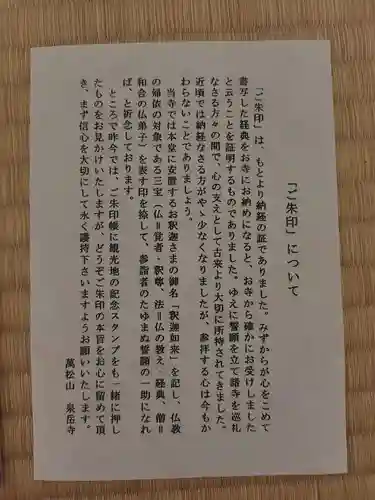 「ご朱印」について
「ご朱印」は、もとより納経の証でありました。みずからが心をこめて
書写した経典をお寺にお納めになると、お寺から確かにお受けしました
と云うことを証明するものでありました。ゆえに誓願を立て諸寺を巡礼
なさる方々の間で、心の支えとして古来より大切に所持されてきました。
近頃では納経なさる方がやゝ少なくなりましたが、参拝する心は今もか
わらないことでありましょう。
当寺では本堂に安置するお釈迦さまの御名「釈迦如来」を記し、仏教
の帰依の対象である三宝（仏＝覚者・釈尊、法＝仏の教え・経典、僧＝
和合の仏弟子）を表す印を捺して、参詣者のたゆまぬ誓願の一助になれ
ば、と祈念しております。
ところで昨今では、ご朱印帳に観光地の記念スタンプをも一緒に押し
たものをお見かけいたしますが、どうぞご朱印の本旨をお心に留めて頂
き、まず信心を大切にして永く護持下さいますようお願いいたします。
萬松山　泉岳寺